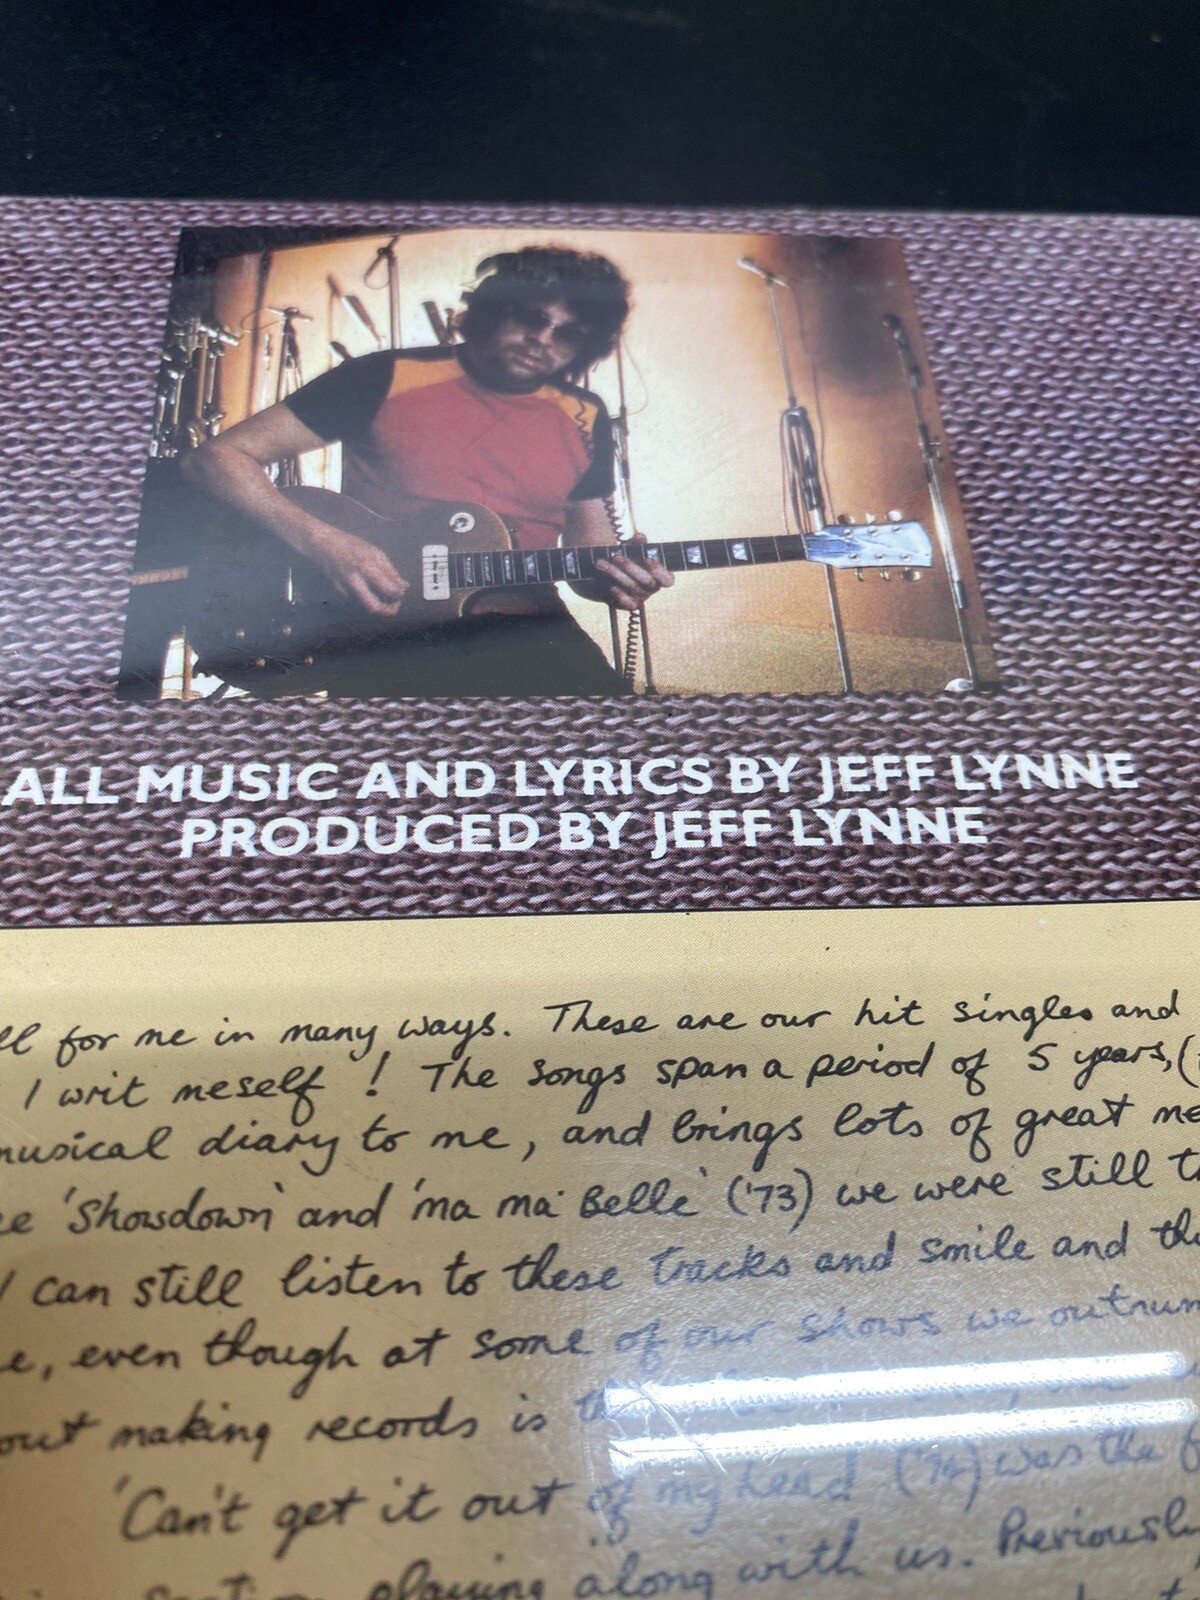 ALL MUSIC AND LYRICS BY JEFF LYNNE
PRODUCED BY JEFF LYNNE
for me in many ways. These are our hit singles and
I writ meself! The songs span a period of 5 years, (
musical diary to me, and brings lots of great me
'Showdown' and 'ma ma Belle' ('73) we were still
I can still listen to these tracks and smile and
e, even though at some of our shows we outnum
out making records is
'Can't get it out of my head ('74) was the f
playing along with us. Previously